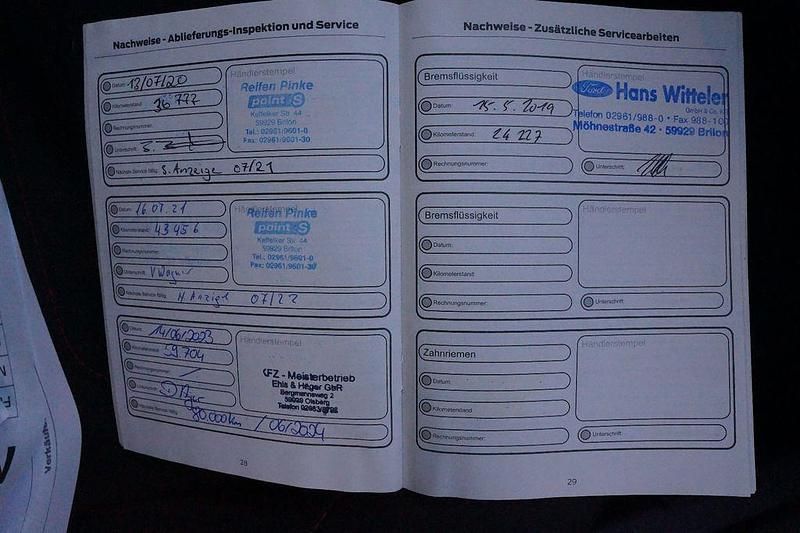 Nachweise - Ablieferungs-Inspektion und Service
Datum: 13/07/20
Kilometerstand: 36 777
Rechnungsnummer:
Unterschrift:
Nächste Service fällig: S. Anzeige 07/21
Händlerstempel
Reifen Pinke
point S
Keffelker Str. 44
59929 Brilon
Tel.: 02961/9601-0
Fax: 02961/9601-30
Datum: 16.07.21
Kilometerstand: 43456
Rechnungsnummer:
Unterschrift: V Wagner
Nächste Service fällig: N. Anzeige 07/22
Händlerstempel
Reifen Pinke
point S
Keffelker Str. 44
59929 Brilon
Tel.: 02961/9601-0
Fax: 02961/9601-30
Datum: 14/06/2023
Kilometerstand: 59.704
Rechnungsnummer: /
Unterschrift:
Nächste Service fällig: 80.000km / 06/2024
Händlerstempel
KFZ - Meisterbetrieb
Ehls & Häger GbR
Bergmannsweg 2
59939 Olsberg
28
Nachweise - Zusätzliche Servicearbeiten
Bremsflüssigkeit
Datum: 15. 5. 2019
Kilometerstand: 24 227
Rechnungsnummer:
Händlerstempel
Ford Hans Witteler
GmbH & Co. K
Telefon 02961/988-0 • Fax 988-100
Möhnestraße 42 · 59929 Brilon
Unterschrift:
Bremsflüssigkeit
Datum:
Kilometerstand:
Rechnungsnummer:
Händlerstempel
Unterschrift:
Zahnriemen
Datum:
Kilometerstand:
Rechnungsnummer:
Händlerstempel
Unterschrift:
29
Verkäuf